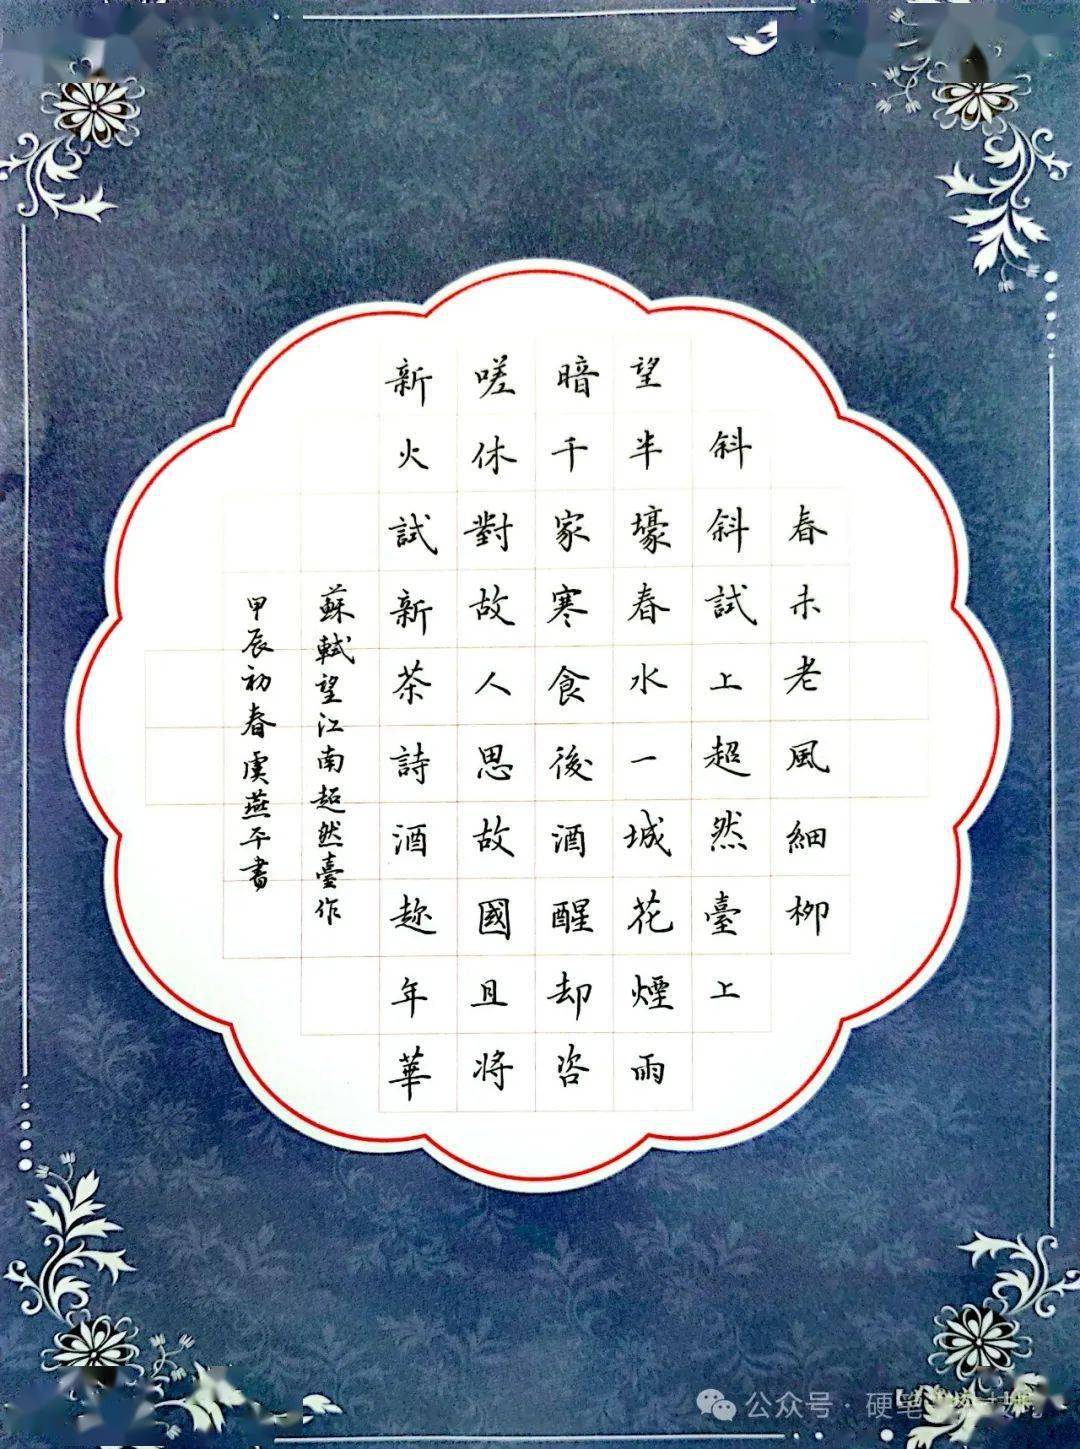 春未老風細柳
斜斜試上超然臺上
望半壕春水一城花煙雨
暗千家寒食後酒醒却咨
嗟休對故人思故國且將
新火試新茶詩酒趂年華
蘇軾望江南超然臺作
甲辰初春虞燕平書
公众号 · 硬笔